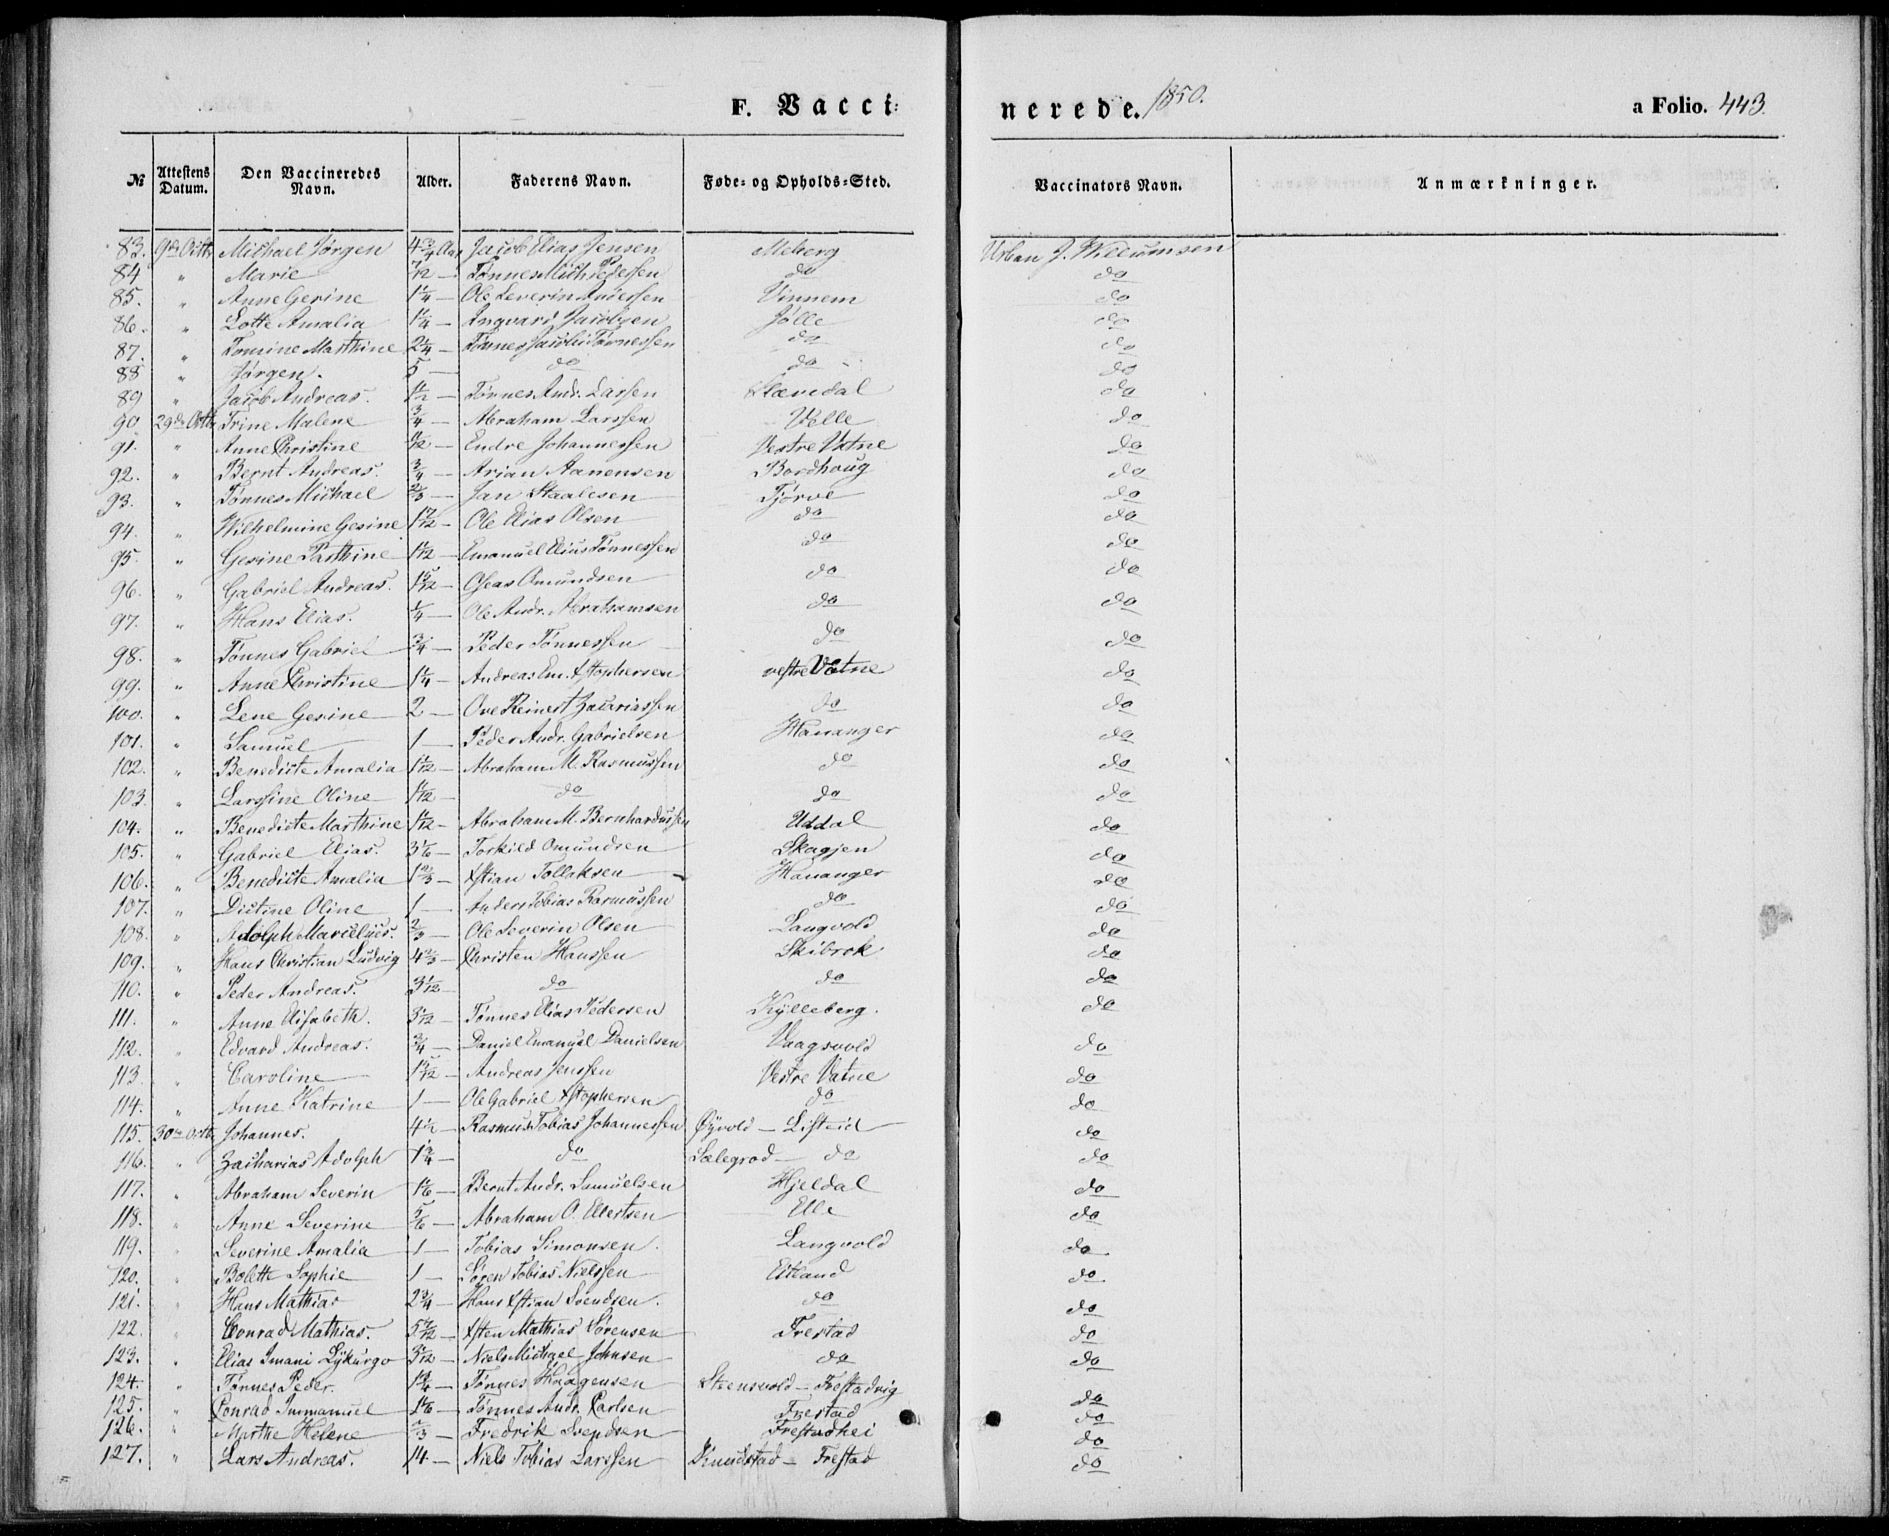 F. Vacci-
nerede. 1850.
a Folio. 443
№ | Attestens Datum. | Den Vaccineredes Navn. | Alder. | Faderens Navn. | Føde- og Opholds-Sted. | Vaccinators Navn. | Anmærkninger.
83. 9de Octb Michael Jørgen 4 3/4 Aar Jacob Elias Jensen Meberg Urban J. Willumsen
84 " Marie 7/12 — Tønnes Mich Pedersen do do
85. " Anne Gerine 1 1/4 — Ole Severin Andersen Vinnem do
86. " Lotte Amalia 1 1/4 — Ingvard Jacobsen Jølle do
87. " Tomine Marthine 2 1/4 — Tønnes Jacobi Tønnessen do do
88 " Jørgen. 5 — do do do
89 " Jacob Andreas. 1 1/2 — Tønnes Andr. Larsen Stavedal do
90 29de Octb Trine Malene 3/4 — Abraham Larssen Velle do
91. " Anne Christine 1/2 — Endre Johannessen Vestre Vatne do
92. " Bernt Andreas 3/4 — Arian Aanensen Bordhoug do
93. " Tønnes Michael 2/3 — Jan Staalesen Tjørve do
94. " Wilhelmine Gesine 1 7/12 — Ole Elias Olsen do do
95. " Gesine Parthine 1 1/12 — Emanuel Elias Tønnessen do do
96. " Gabriel Andreas. 1 5/12 — Oseas Omundsen do do
97. " Hans Elias. 1/4 — Ole Andr. Abrahamsen do do
98. " Tønnes Gabriel 3/4 — Peder Tønnessen do do
99. " Anne Christine 1 1/4 — Andreas Em. Xstophersen vestre Vatne do
100. " Lene Gesine 2 — Ove Reinert Zacariassen do do
101. " Samuel 1 — Peder Andr. Gabrielsen Hananger do
102. " Benedicte Amalia 1 1/12 — Abraham M. Rasmussen do do
103. " Larssine Oline 1 1/12 — do do do
104. " Benedicte Marthine 1 1/12 — Abraham M. Bernhardussen Uddal do
105. " Gabriel Elias. 3 1/6 — Torkild Omundsen Skagjen do
106. " Benedicte Amalia 1 2/3 — Xstian Tollaksen Hananger do
107. " Dictine Oline 1 — Anders Tobias Rasmussen do do
108. " Adolph Marcelius. 2/3 — Ole Severin Olsen Langvold do
109. " Hans Christian Ludvig 4 2/3 — Christen Hanssen Skibrok do
110. " Peder Andreas. 3 1/12 — do do do
111. " Anne Elisabeth. 3 1/12 — Tønnes Elias Pedersen Kylleberg. do
112. " Edvard Andreas. 3/4 — Daniel Emanuel Danielsen Vaagsvold do
113. " Caroline 1 5/12 — Andreas Jenssen Vestre Vatne do
114. " Anne Katrine 1 — Ole Gabriel Xstophersen do do
115. 30te Octb Johannes. 4 1/2 — Rasmus Tobias Johannessen Øyvold — Listeid do
116. " Zacharias Adolph 1 3/4 — do Sælegrod — do do
117. " Abraham Severin 1 1/6 — Bernt Andr. Samuelsen Hjeldal do
118. " Anne Severine 5/6 — Abraham O. Elertsen Elle do
119. " Severine Amalia 1 — Tobias Simonsen. Langvold do.
120. " Bolette Sophie 1 — Søren Tobias Nielssen Eitland do.
121. " Hans Mathias 2 3/4 — Hans Xstian Svendsen. do do
122. " Conrad Mathias. 5 7/12 — Xsten Mathias Sørensen Frestad do
123. " Elias Imani Lykurgo 3 5/12 — Niels Michael Johnsen do do
124. " Tønnes Peder. 1 3/4 — Tønnes Haagensen Steensvold — Frestadvig do
125. " Conrad Immanuel 1 1/6 — Tønnes Andr. Carlsen Frestad do
126. " Marthe Helene 2/3 — Fredrik Svendsen Frestadhei do
127. " Lars Andreas. 14 — Niels Tobias Larssen Knudstad — Frestad do